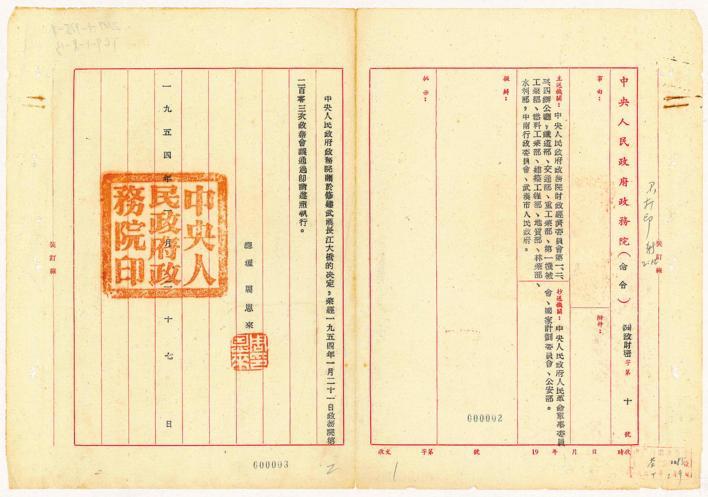 中央人民政府政務院（命令）
政財密字第十號
事由：
附件：
主送機關：中央人民政府政務院財政經濟委員會第一、二、
三、四辦公廳，鐵道部、交通部、重工業部、第一機械
工業部、燃料工業部、建築工程部、地質部、林業部、
水利部，中南行政委員會、武漢市人民政府。
抄送機關：中央人民政府人民革命軍事委員
會、國家計劃委員會、公安部。
擬辦：
批示：
600002
收文 字第 號 19 年 月 日 時收
1
裝訂線
不打印
中央人民政府政務院關於修建武漢長江大橋的決定，業經一九五四年一月二十一日政務院第
二百零三次政務會議通過，即希遵照執行。
總理 周恩來
周恩來
一九五四年一月二十七日
中央人民政府政務院印
600003
2
裝訂線